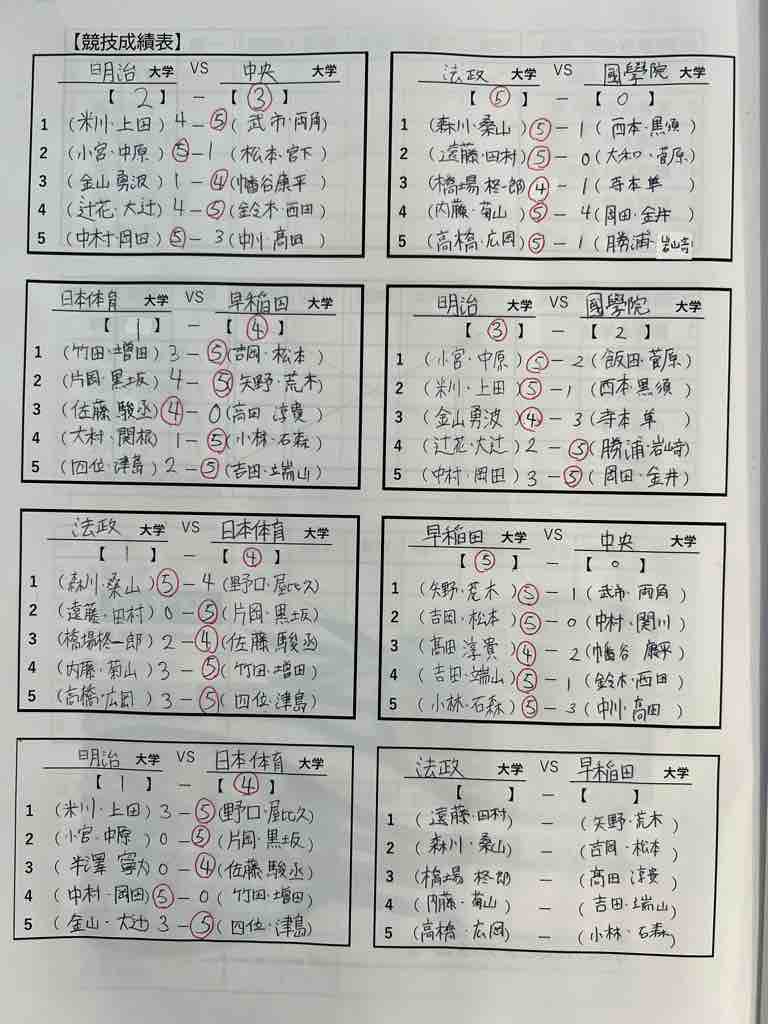 【競技成績表】
明治 大学 VS 中央 大学
【 2 】 － 【 ③ 】
1 (米川・上田) 4 － ⑤ (武市・両角)
2 (小宮・中原) ⑤ － 1 (松本・宮下)
3 (金山勇波) 1 － ④ (幡谷康平)
4 (辻花・大辻) 4 － ⑤ (鈴木・西田)
5 (中村・岡田) ⑤ － 3 (中川・髙田)
法政 大学 VS 國學院 大学
【 ⑤ 】 － 【 0 】
1 (森川・桑山) ⑤ － 1 (西本・黒須)
2 (遠藤・田村) ⑤ － 0 (大和・菅原)
3 (橋場柊一郎) ④ － 1 (寺本単)
4 (内藤・菊山) ⑤ － 4 (岡田・金井)
5 (高橋・広岡) ⑤ － 1 (勝浦・岩﨑)
日本体育 大学 VS 早稲田 大学
【 1 】 － 【 ④ 】
1 (竹田・増田) 3 － ⑤ (吉岡・松本)
2 (片岡・黒坂) 4 － ⑤ (矢野・荒木)
3 (佐藤駿丞) ④ － 0 (髙田淳貴)
4 (大村・関根) 1 － ⑤ (小林・石森)
5 (四位・津島) 2 － ⑤ (吉田・端山)
明治 大学 VS 國學院 大学
【 ③ 】 － 【 2 】
1 (小宮・中原) ⑤ － 2 (飯田・菅原)
2 (米川・上田) ⑤ － 1 (西本・黒須)
3 (金山勇波) ④ － 3 (寺本単)
4 (辻花・大辻) 2 － ⑤ (勝浦・岩﨑)
5 (中村・岡田) 3 － ⑤ (岡田・金井)
法政 大学 VS 日本体育 大学
【 1 】 － 【 ④ 】
1 (森川・桑山) ⑤ － 4 (野口・屋比久)
2 (遠藤・田村) 0 － ⑤ (片岡・黒坂)
3 (橋場柊一郎) 2 － ④ (佐藤駿丞)
4 (内藤・菊山) 3 － ⑤ (竹田・増田)
5 (高橋・広岡) 3 － ⑤ (四位・津島)
早稲田 大学 VS 中央 大学
【 ⑤ 】 － 【 0 】
1 (矢野・荒木) ⑤ － 1 (武市・両角)
2 (吉岡・松本) ⑤ － 0 (中村・関川)
3 (髙田淳貴) ④ － 2 (幡谷康平)
4 (吉田・端山) ⑤ － 1 (鈴木・西田)
5 (小林・石森) ⑤ － 3 (中川・髙田)
明治 大学 VS 日本体育 大学
【 1 】 － 【 ④ 】
1 (米川・上田) 3 － ⑤ (野口・屋比久)
2 (小宮・中原) 0 － ⑤ (片岡・黒坂)
3 (半澤寧) 0 － ④ (佐藤駿丞)
4 (中村・岡田) ⑤ － 0 (竹田・増田)
5 (金山・大辻) 3 － ⑤ (四位・津島)
法政 大学 VS 早稲田 大学
【 】 － 【 】
1 (遠藤・田村) － (矢野・荒木)
2 (森川・桑山) － (吉岡・松本)
3 (橋場柊一郎) － (髙田淳貴)
4 (内藤・菊山) － (吉田・端山)
5 (高橋・広岡) － (小林・石森)